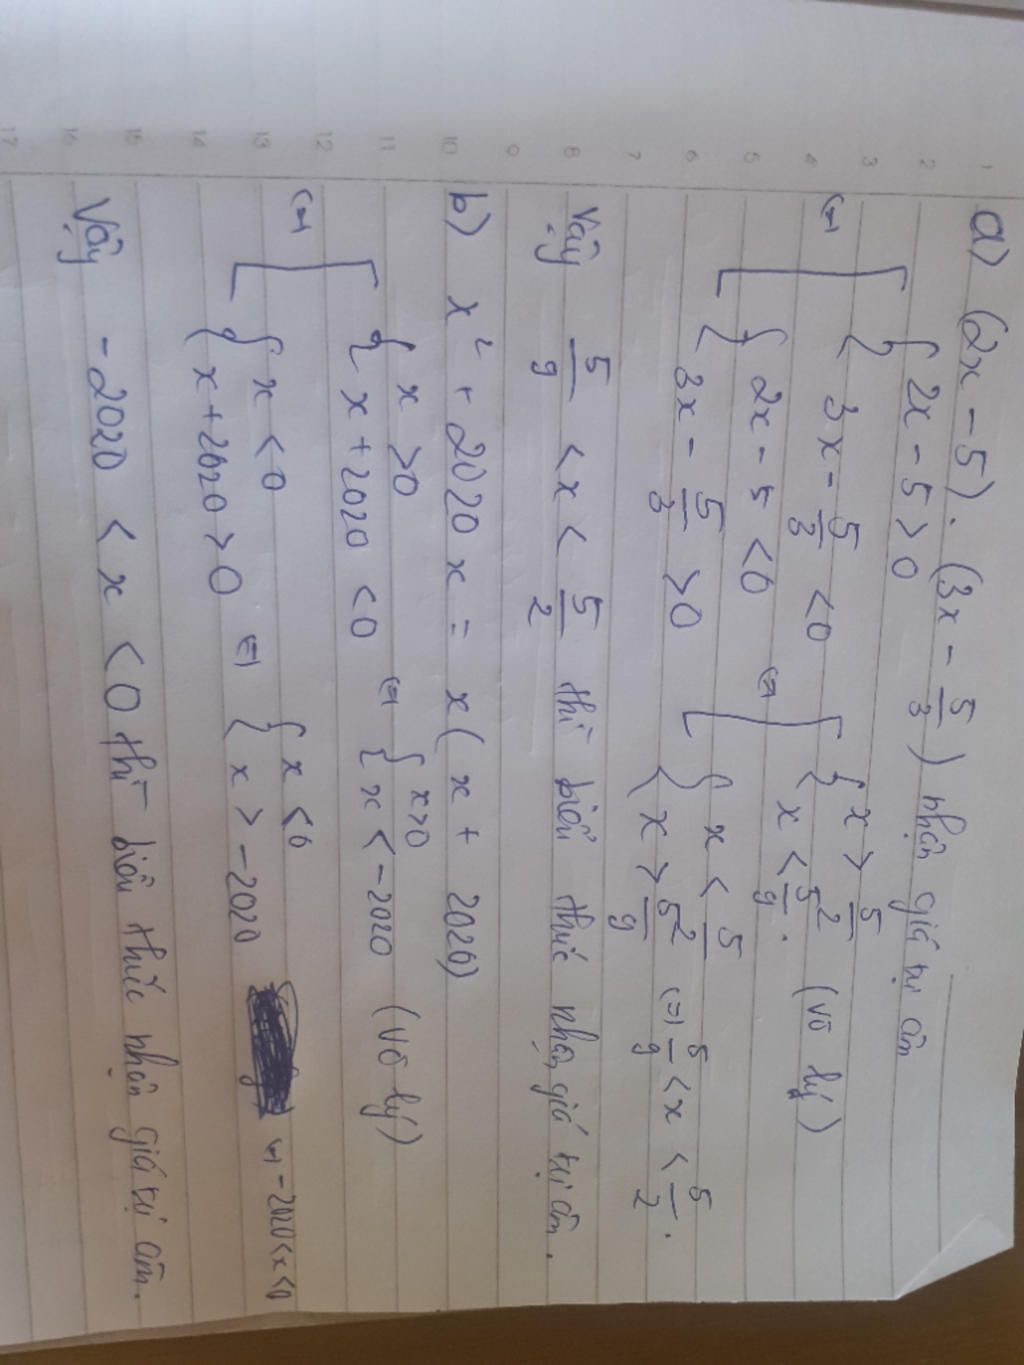 a) (2x - 5). (3x - 5/3) nhận giá trị âm
(=) [ { 2x - 5 > 0
{ 3x - 5/3 < 0
{ 2x - 5 < 0
{ 3x - 5/3 > 0
(=) [ { x > 5/2
{ x < 5/9. (vô lý)
{ x < 5/2
{ x > 5/9 (=) 5/9 < x < 5/2.
Vậy 5/9 < x < 5/2 thì biểu thức nhận giá trị âm.
b) x² + 2020 x = x( x + 2020)
(=) [ { x > 0
{ x + 2020 < 0 (=) { x > 0
{ x < -2020 (vô lý)
{ x < 0
{ x + 2020 > 0 (=) { x < 0
{ x > -2020 (=) -2020 < x < 0
Vậy -2020 < x < 0 thì biểu thức nhận giá trị âm.
1
2
3
4
5
6
7
8
9
10
11
12
13
14
15
16
17